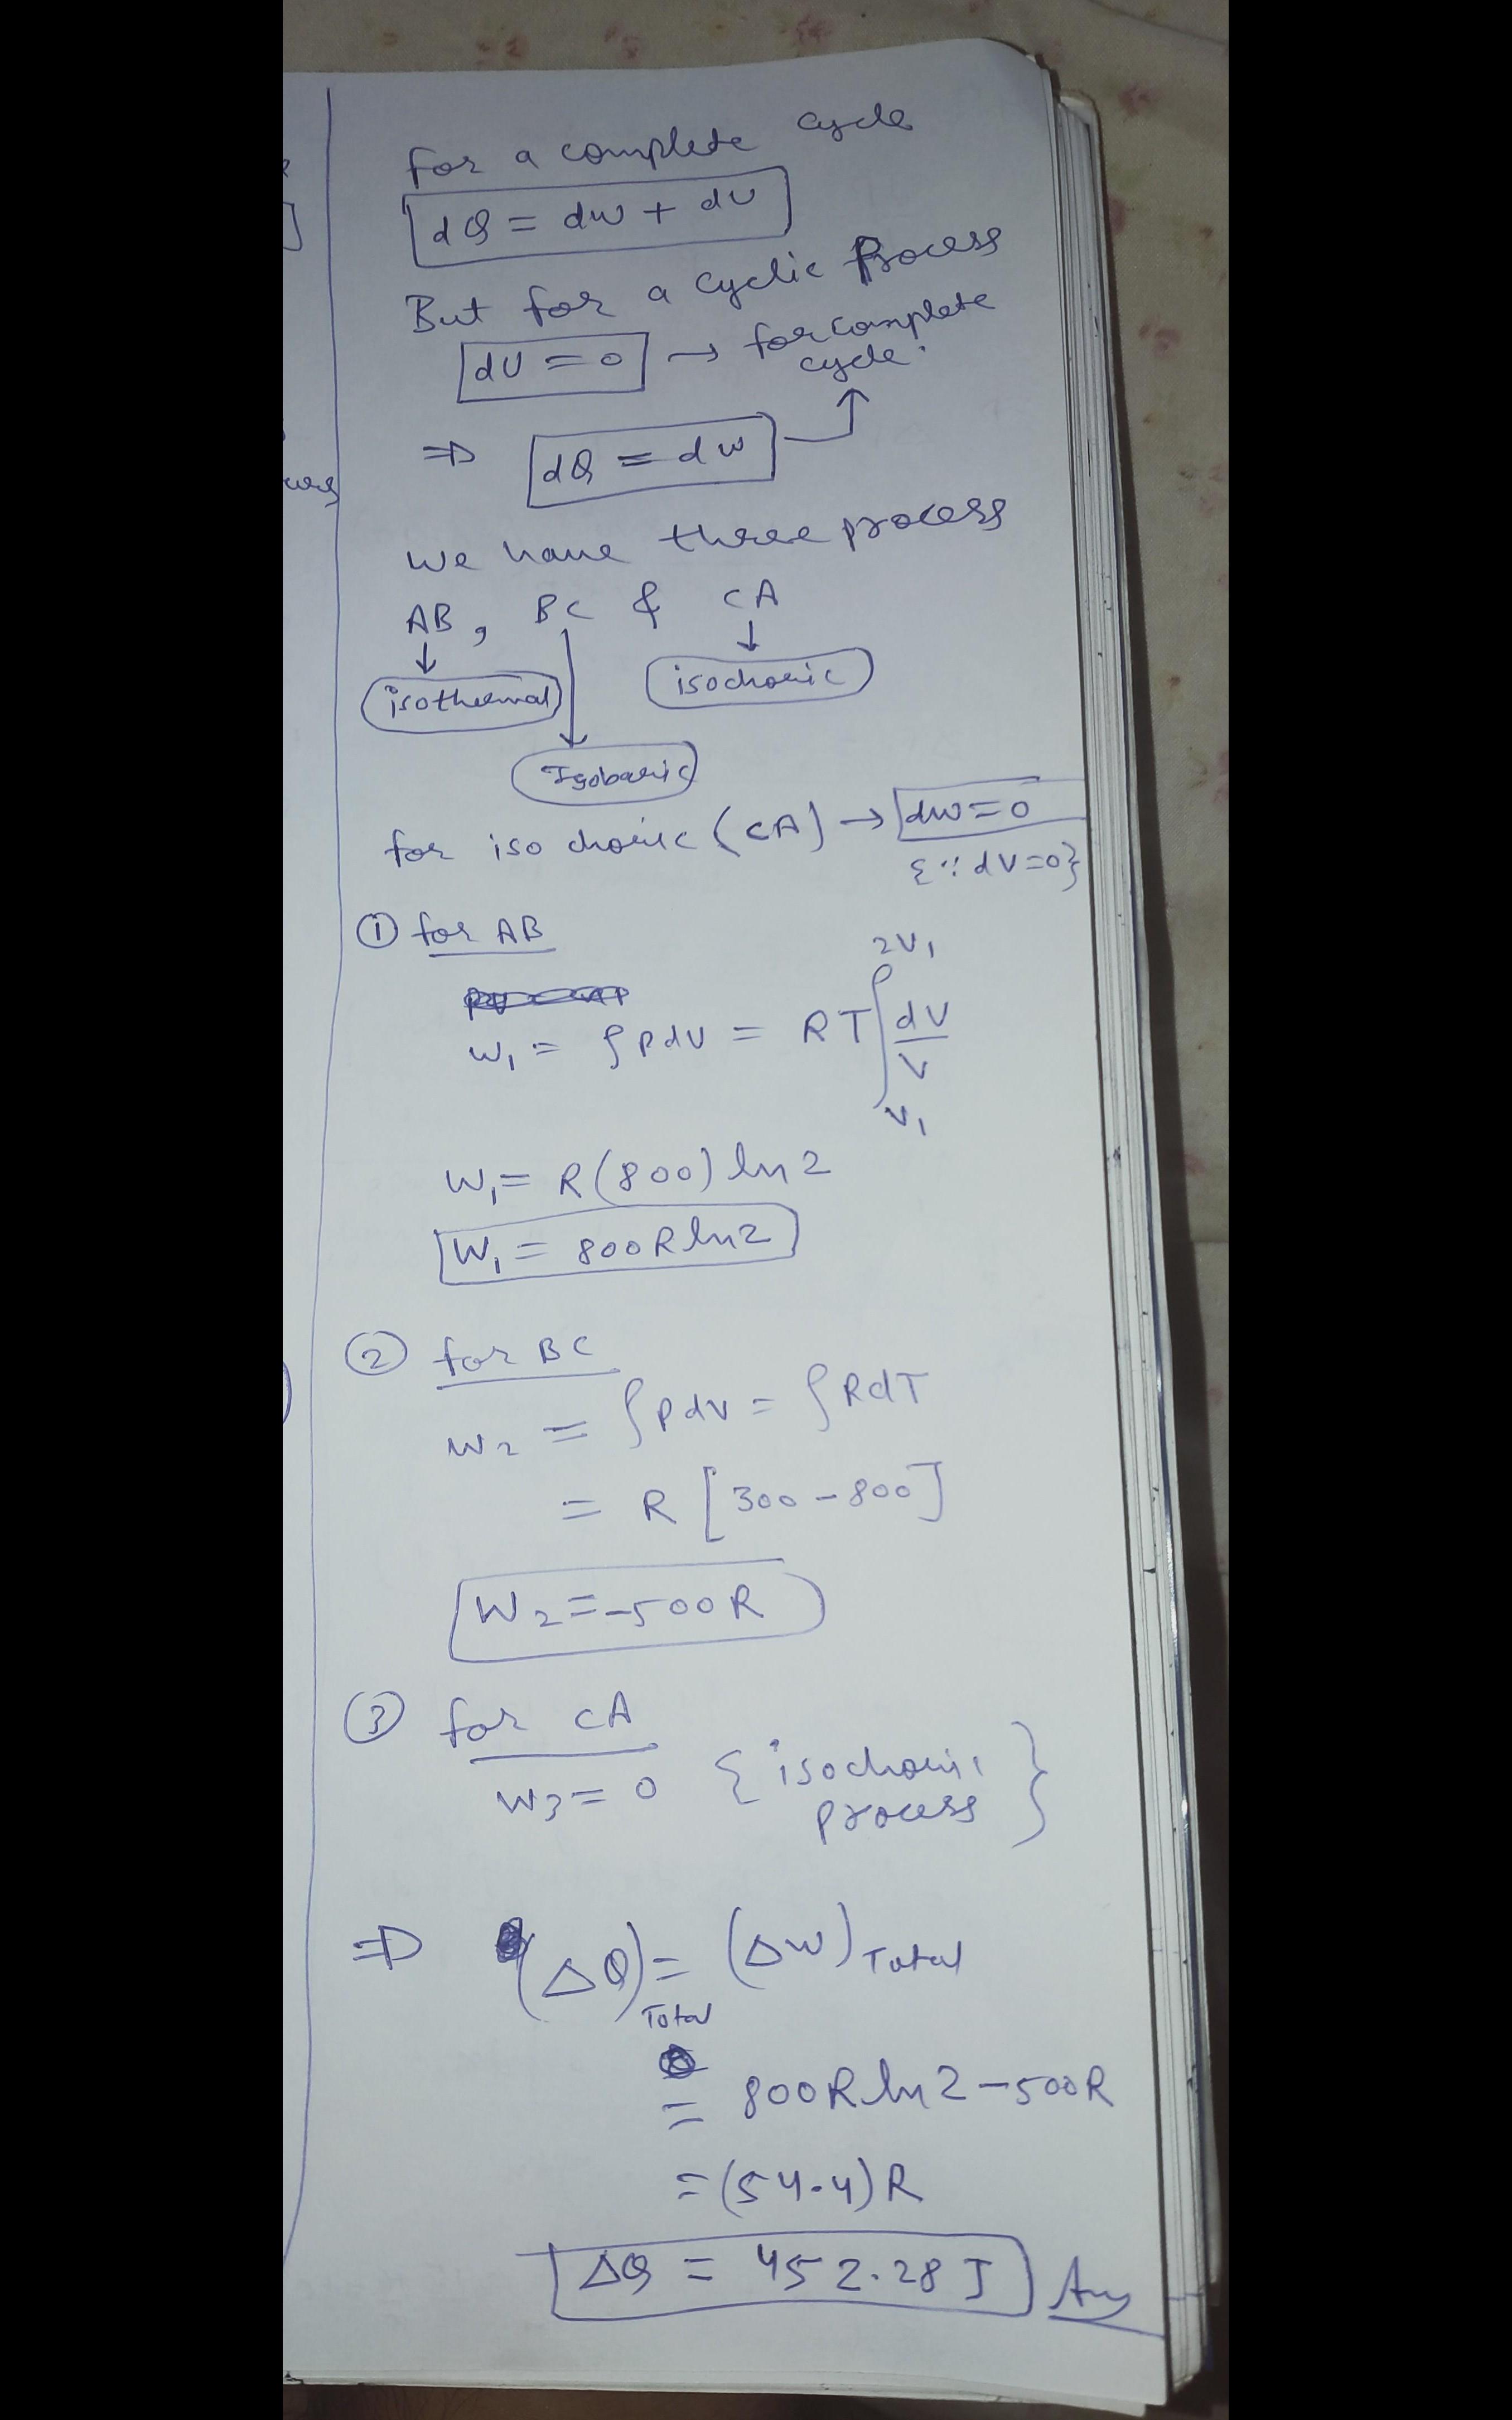 for a complete cycle
dQ = dw + dU
But for a cyclic Process
dU = 0 → for complete
cycle.
⇒ dQ = dw
we have three process
AB, BC & CA
↓ ↓
isothermal isochoric
Isobaric
for isochoric (CA) → dw = 0
{∵ dV = 0}
① for AB
2V₁
w₁ = ∫PdV = RT∫dV/V
V₁
W₁ = R(800) ln2
W₁ = 800Rln2
② for BC
W₂ = ∫PdV = ∫RdT
= R [300 - 800]
W₂ = -500R
③ for CA
W₃ = 0 {isochoric
process}
⇒ (ΔQ) = (ΔW) Total
Total
= 800R ln2 - 500R
= (54.4)R
ΔQ = 452.28 J Ans